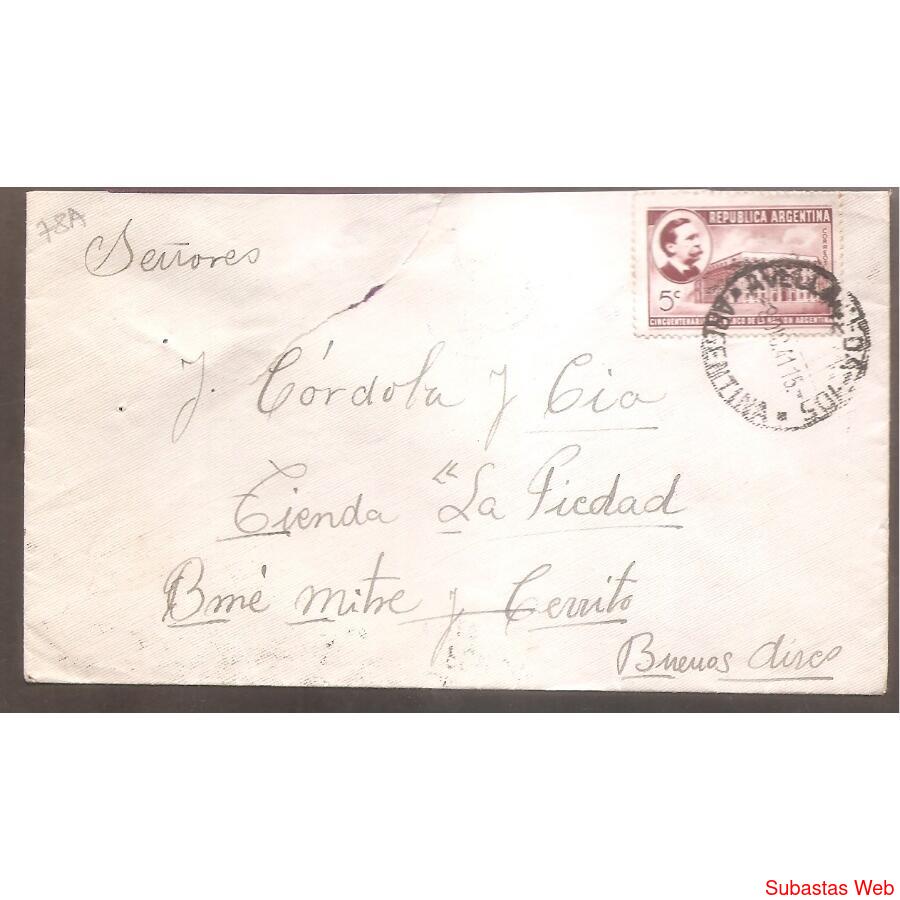 78A
Señores
J. Córdoba y Cia
Tienda "La Piedad
Bmé Mitre y Cerrito
Buenos Aires
REPUBLICA ARGENTINA
CORREOS
5c
CINCUENTENARIO BANCO DE LA NACION ARGENTINA
AVELLANEDA
ARGENTINA
Subastas Web